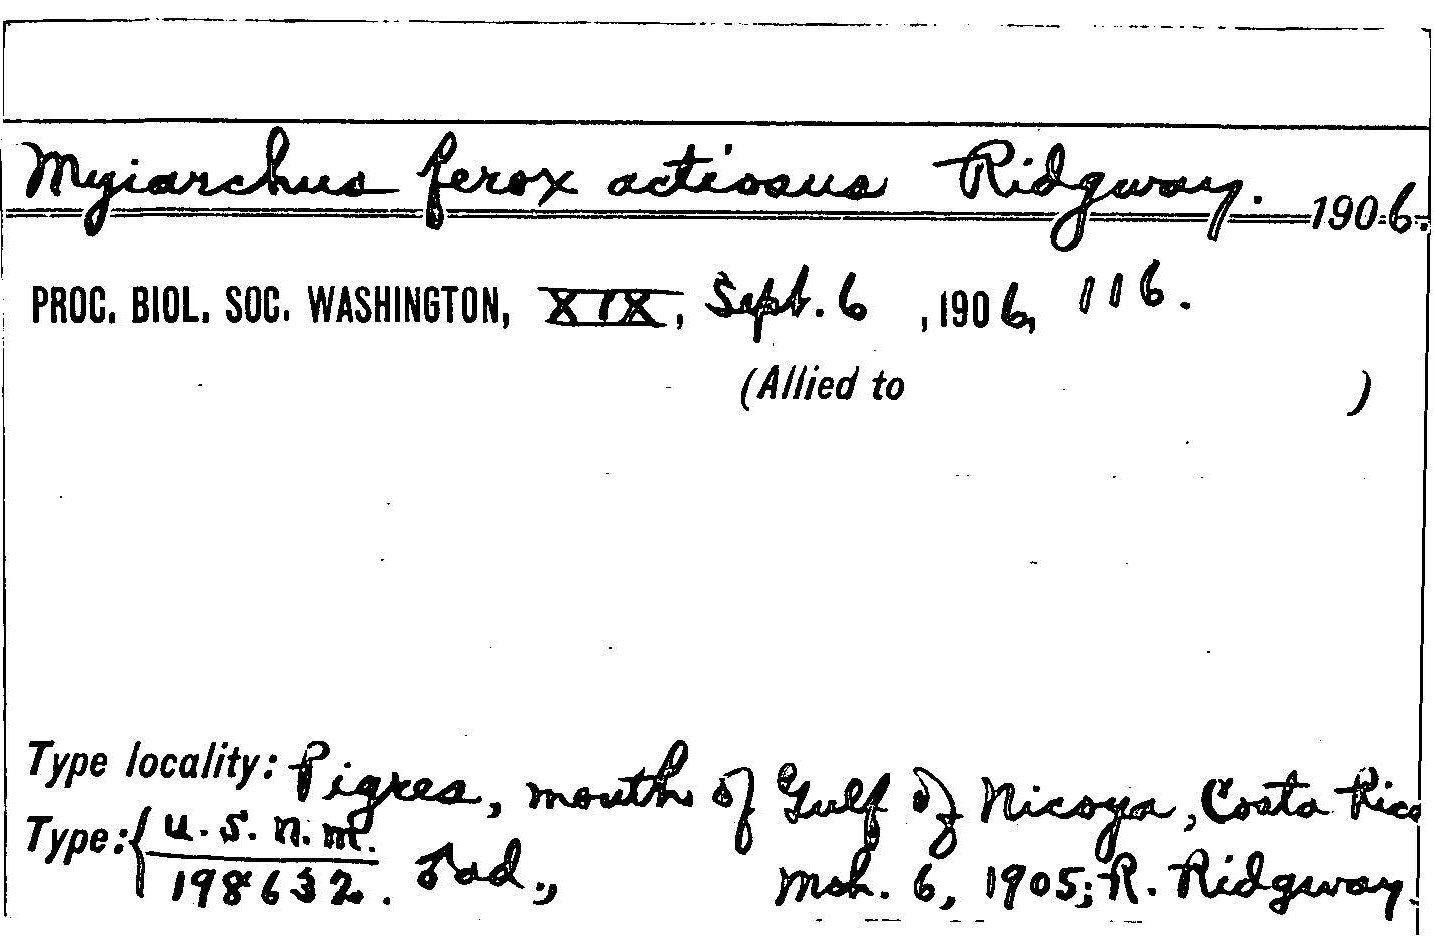 Myiarchus ferox actiosus Ridgway. 1906.
PROC. BIOL. SOC. WASHINGTON, XIX, Sept. 6, 1906, 116.
(Allied to )
Type locality: Pigres, mouth of Gulf of Nicoya, Costa Rica
Type: { U.S.N.M.
198632. ad., Mch. 6, 1905; R. Ridgway.